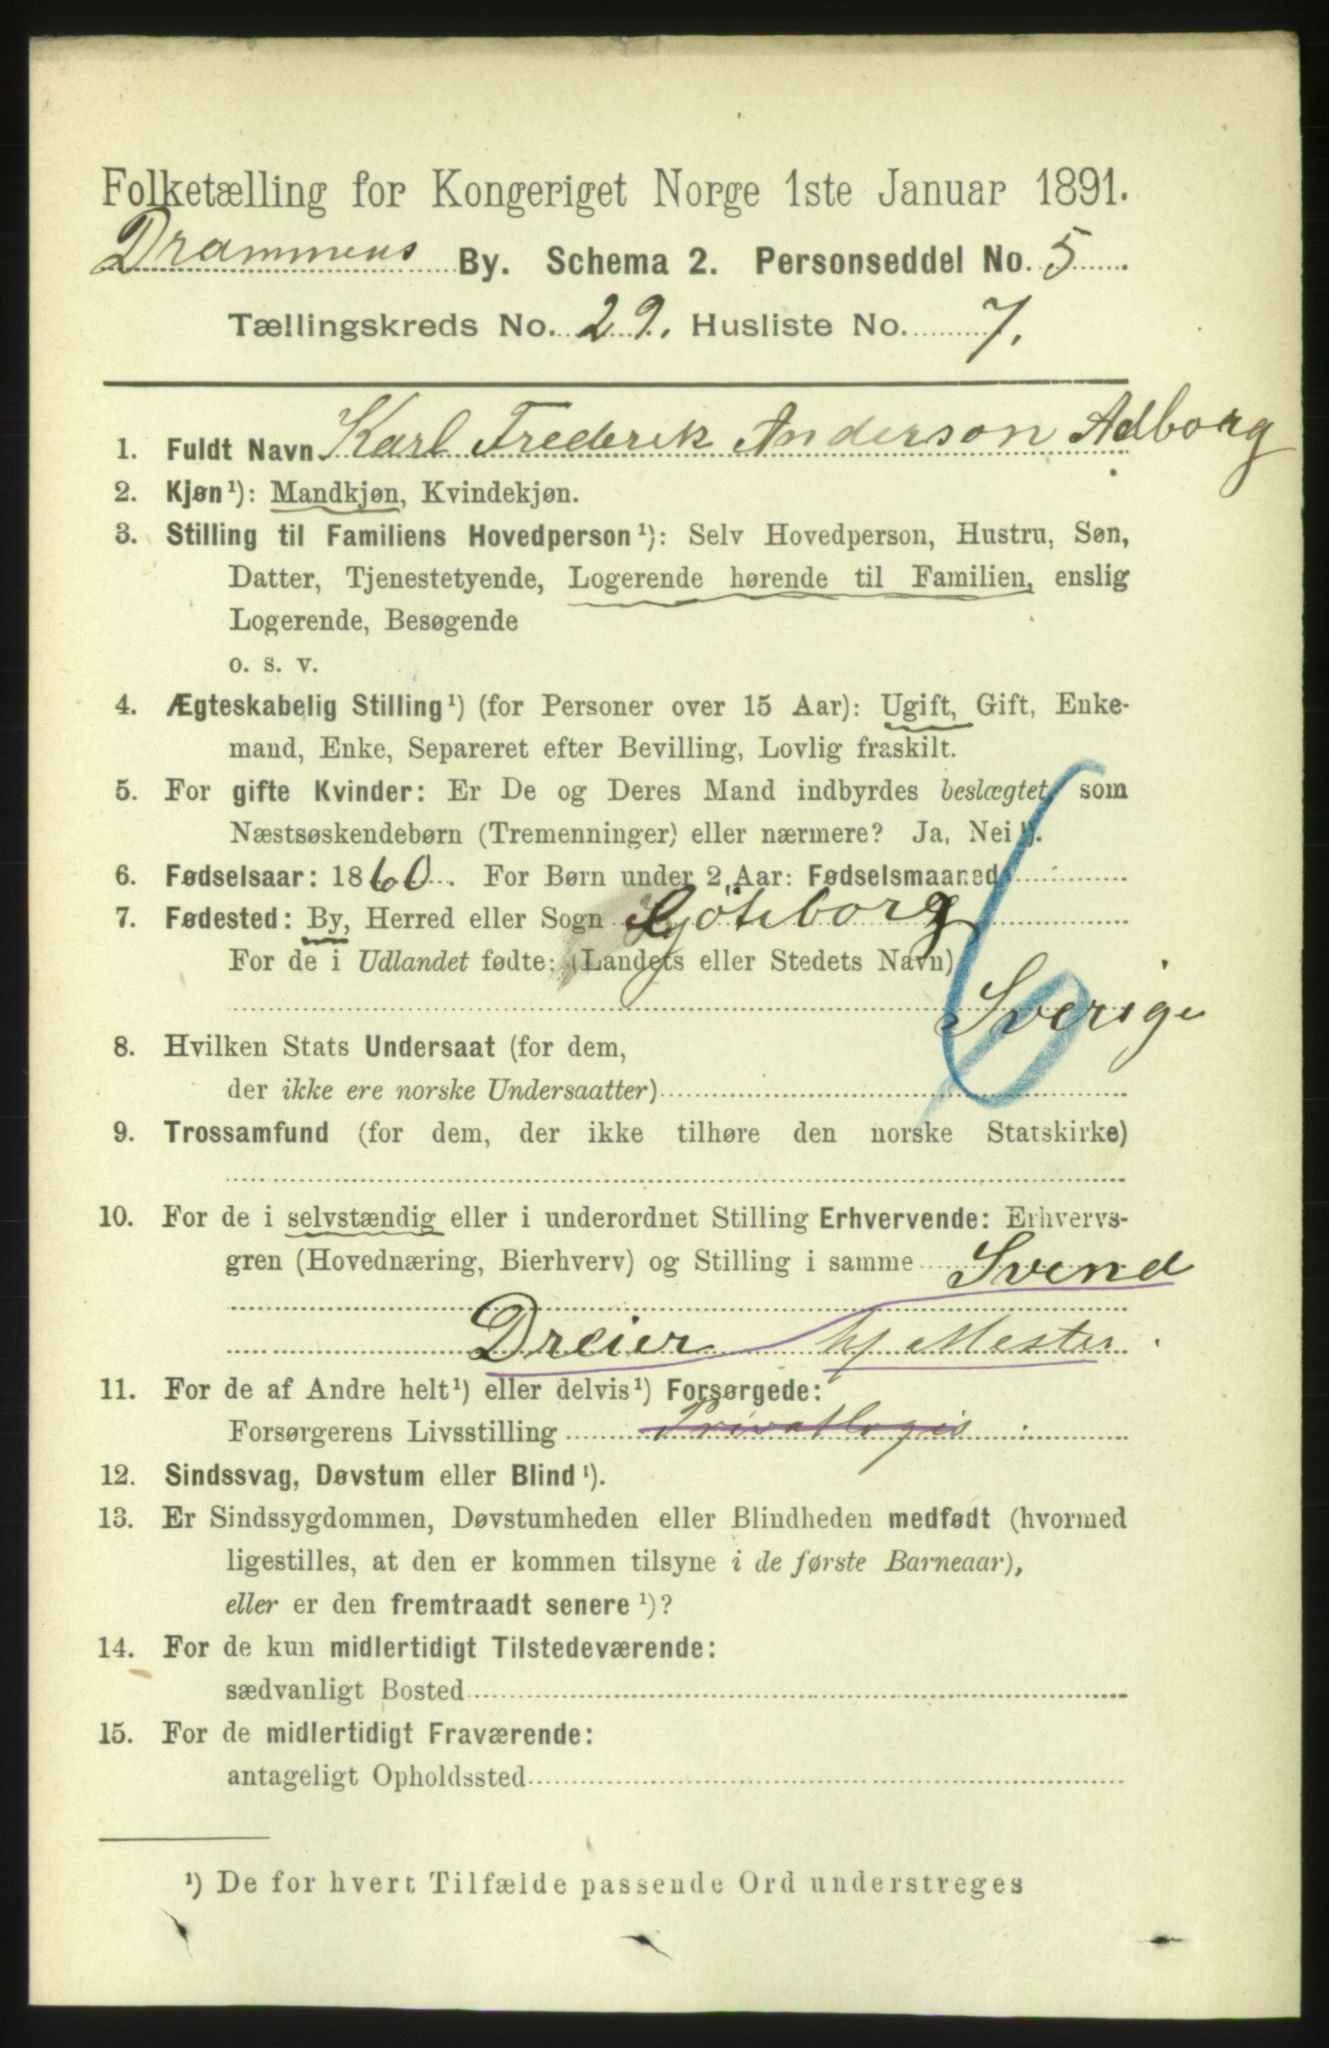 Folketælling for Kongeriget Norge 1ste Januar 1891.
Drammens By. Schema 2. Personseddel No. 5
Tællingskreds No. 29. Husliste No. 7.
1. Fuldt Navn Karl Frederik Anderson Adborg
2. Kjøn ¹): Mandkjøn, Kvindekjøn.
3. Stilling til Familiens Hovedperson ¹): Selv Hovedperson, Hustru, Søn,
Datter, Tjenestetyende, Logerende hørende til Familien, enslig
Logerende, Besøgende
o. s. v.
4. Ægteskabelig Stilling ¹) (for Personer over 15 Aar): Ugift, Gift, Enke-
mand, Enke, Separeret efter Bevilling, Lovlig fraskilt.
5. For gifte Kvinder: Er De og Deres Mand indbyrdes beslægtet som
Næstsøskendebørn (Tremenninger) eller nærmere? Ja, Nei ¹).
6. Fødselsaar: 1860. For Børn under 2 Aar: Fødselsmaaned
7. Fødested: By, Herred eller Sogn Göteborg
For de i Udlandet fødte: (Landets eller Stedets Navn)
Sverige
8. Hvilken Stats Undersaat (for dem,
der ikke ere norske Undersaatter)
9. Trossamfund (for dem, der ikke tilhøre den norske Statskirke)
10. For de i selvstændig eller i underordnet Stilling Erhvervende: Erhvervs-
gren (Hovednæring, Bierhverv) og Stilling i samme Svend
Dreier hf Mester.
11. For de af Andre helt ¹) eller delvis ¹) Forsørgede:
Forsørgerens Livsstilling Privatlogis
12. Sindssvag, Døvstum eller Blind ¹).
13. Er Sindssygdommen, Døvstumheden eller Blindheden medfødt (hvormed
ligestilles, at den er kommen tilsyne i de første Barneaar),
eller er den fremtraadt senere ¹)?
14. For de kun midlertidigt Tilstedeværende:
sædvanligt Bosted
15. For de midlertidigt Fraværende:
antageligt Opholdssted
¹) De for hvert Tilfælde passende Ord understreges